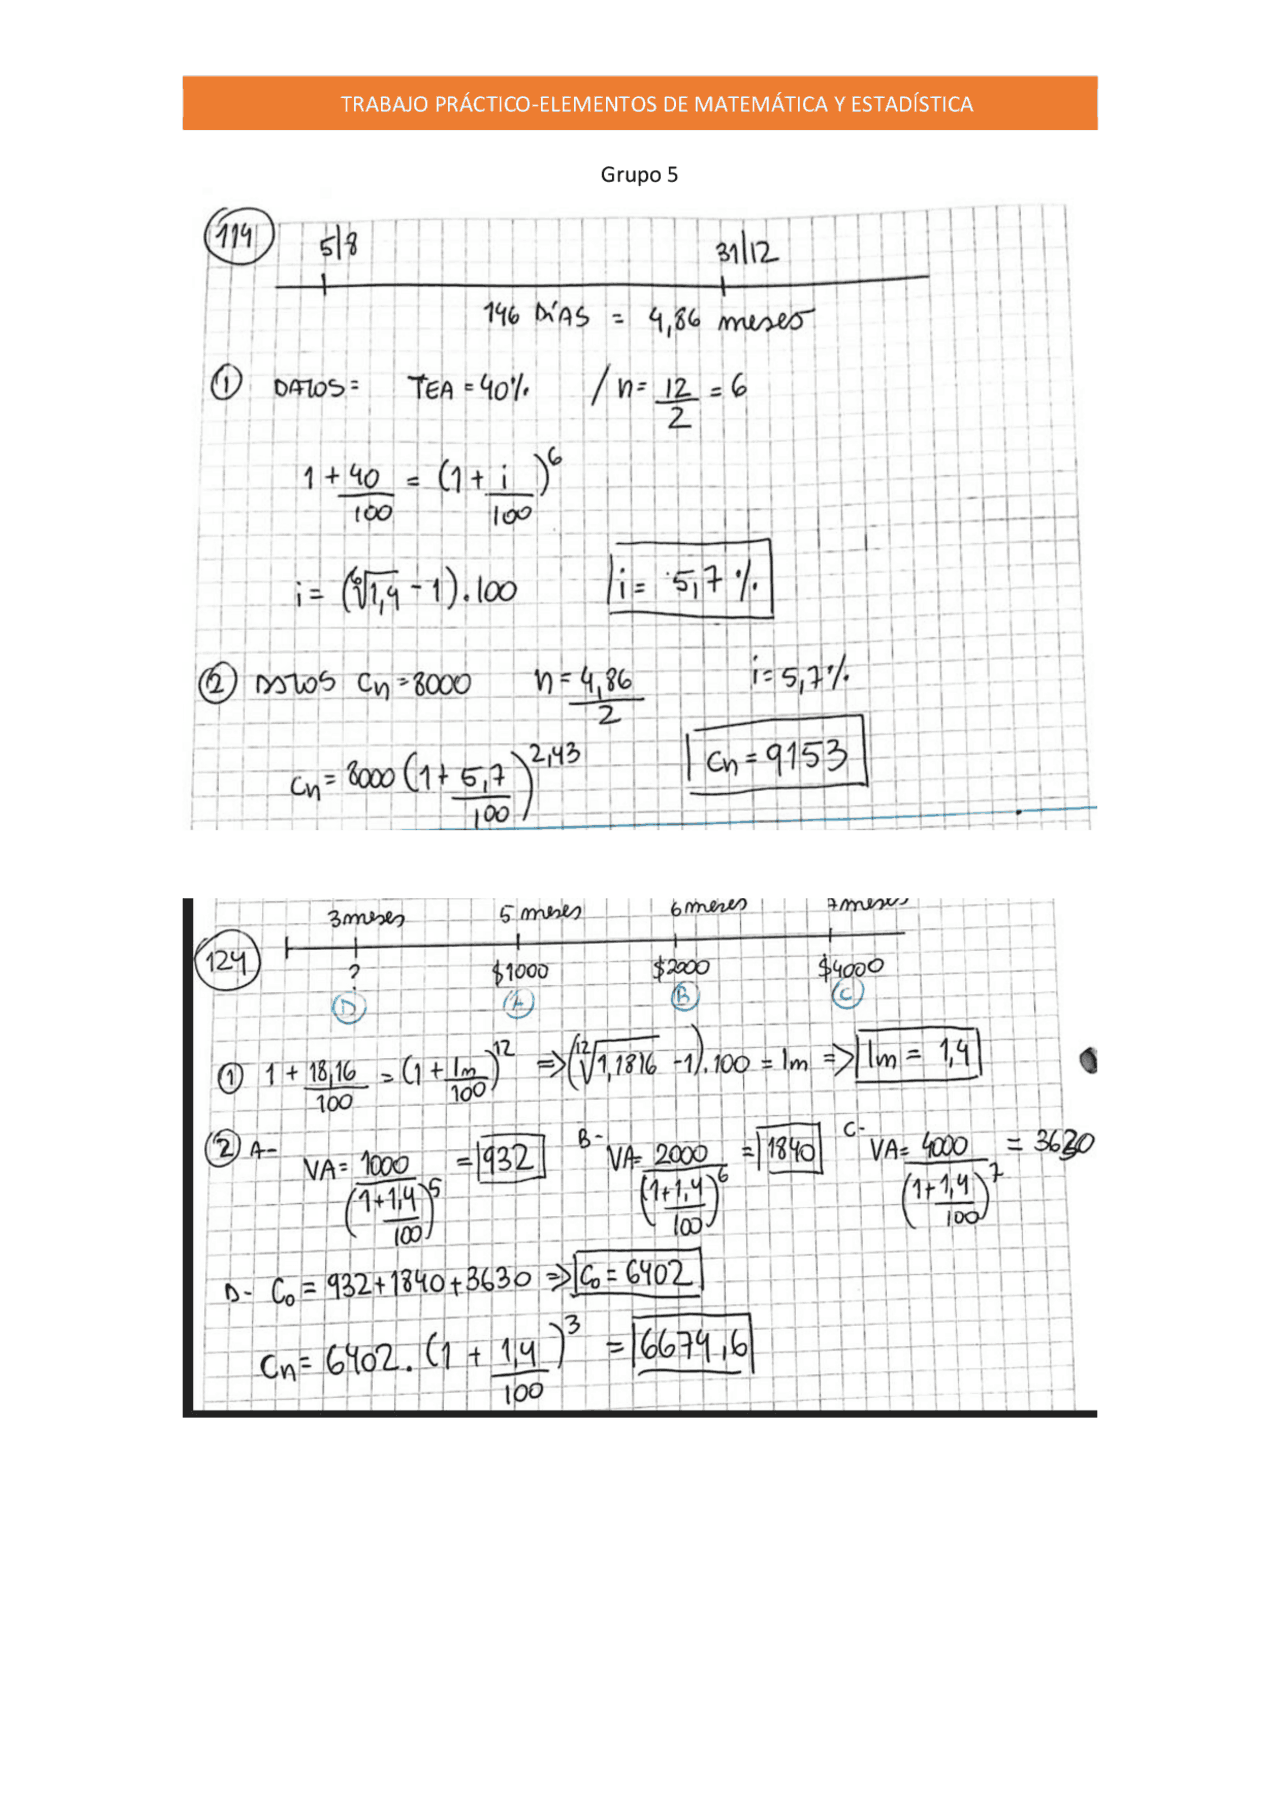 TRABAJO PRÁCTICO-ELEMENTOS DE MATEMÁTICA Y ESTADÍSTICA
Grupo 5
114 5/8 31/12
146 DÍAS = 4,86 meses
① DATOS= TEA=40% / n= 12/2 = 6
1 + 40/100 = (1 + i/100)^6
i = (⁶√1,4 - 1).100 i= 5,7%
② DATOS Cn=8000 n= 4,86/2 i=5,7%
Cn= 8000 (1+ 5,7/100)^2,43 Cn=9153
3 meses 5 meses 6 meses 7 meses
124 ? $1000 $2000 $4000
D A B C
① 1 + 18,16/100 = (1 + Im/100)^12 => (¹²√1,1816 - 1).100 = Im => Im = 1,4
② A- VA= 1000/(1+1,4/100)^5 = 932 B- VA= 2000/(1+1,4/100)^6 = 1840 C- VA= 4000/(1+1,4/100)^7 = 3630
D- Co = 932+1840+3630 => Co = 6402
Cn= 6402. (1 + 1,4/100)^3 = 6674,6